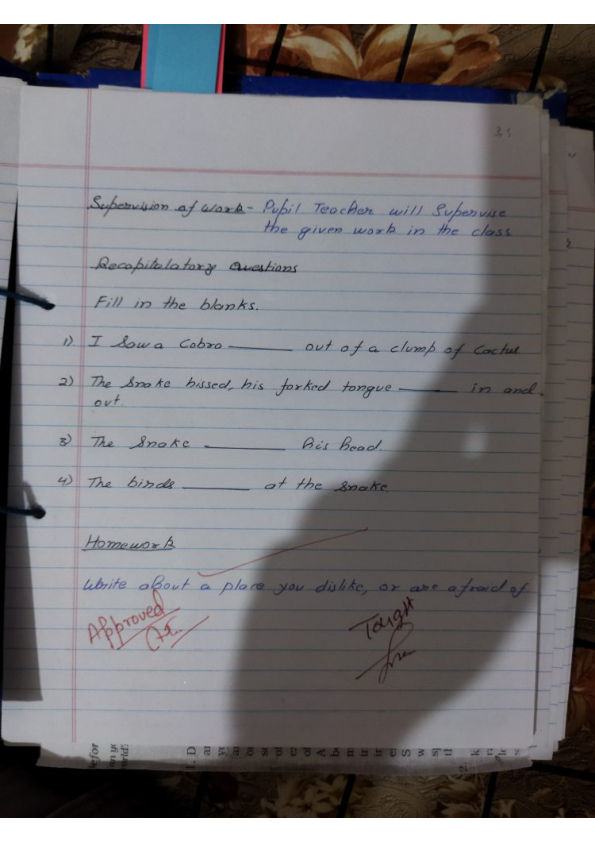 35
Supervision of work - Pupil Teacher will Supervise
the given work in the class
Recapitulatory Questions
Fill in the blanks.
1) I Saw a Cobra ______ out of a clump of Cactus
2) The Snake hissed, his forked tongue ______ in and
out.
3) The Snake ______ his head.
4) The birds ______ at the Snake.
Homework
Write about a place you dislike, or are afraid of
Approved
Taught